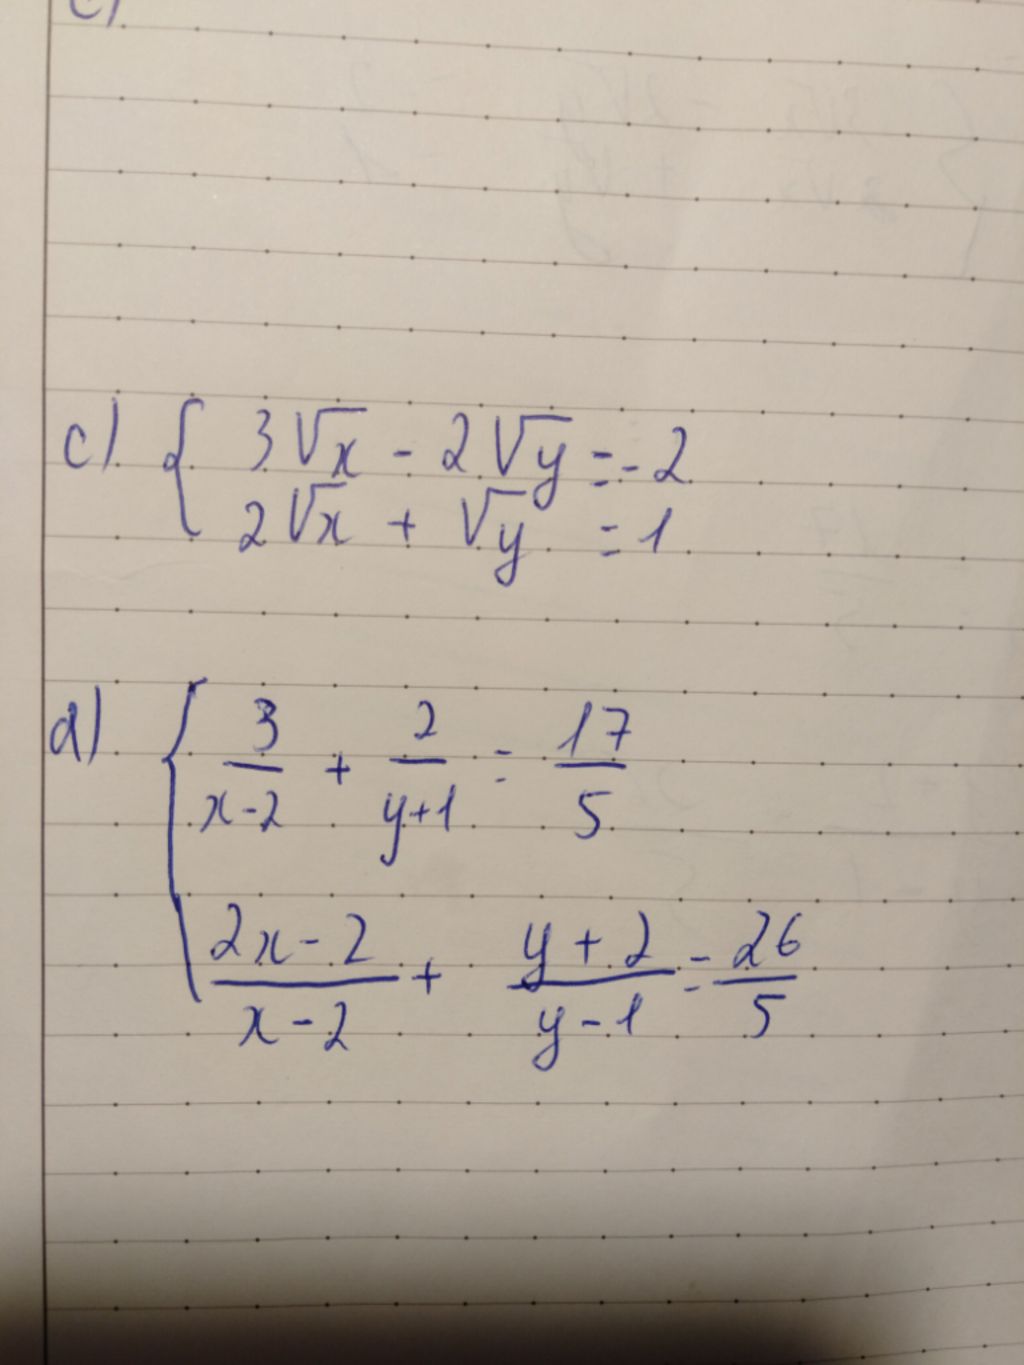 c) { 3√x - 2√y = -2
2√x + √y = 1
d) { 3/(x-2) + 2/(y+1) = 17/5
(2x-2)/(x-2) + (y+2)/(y-1) = 26/5